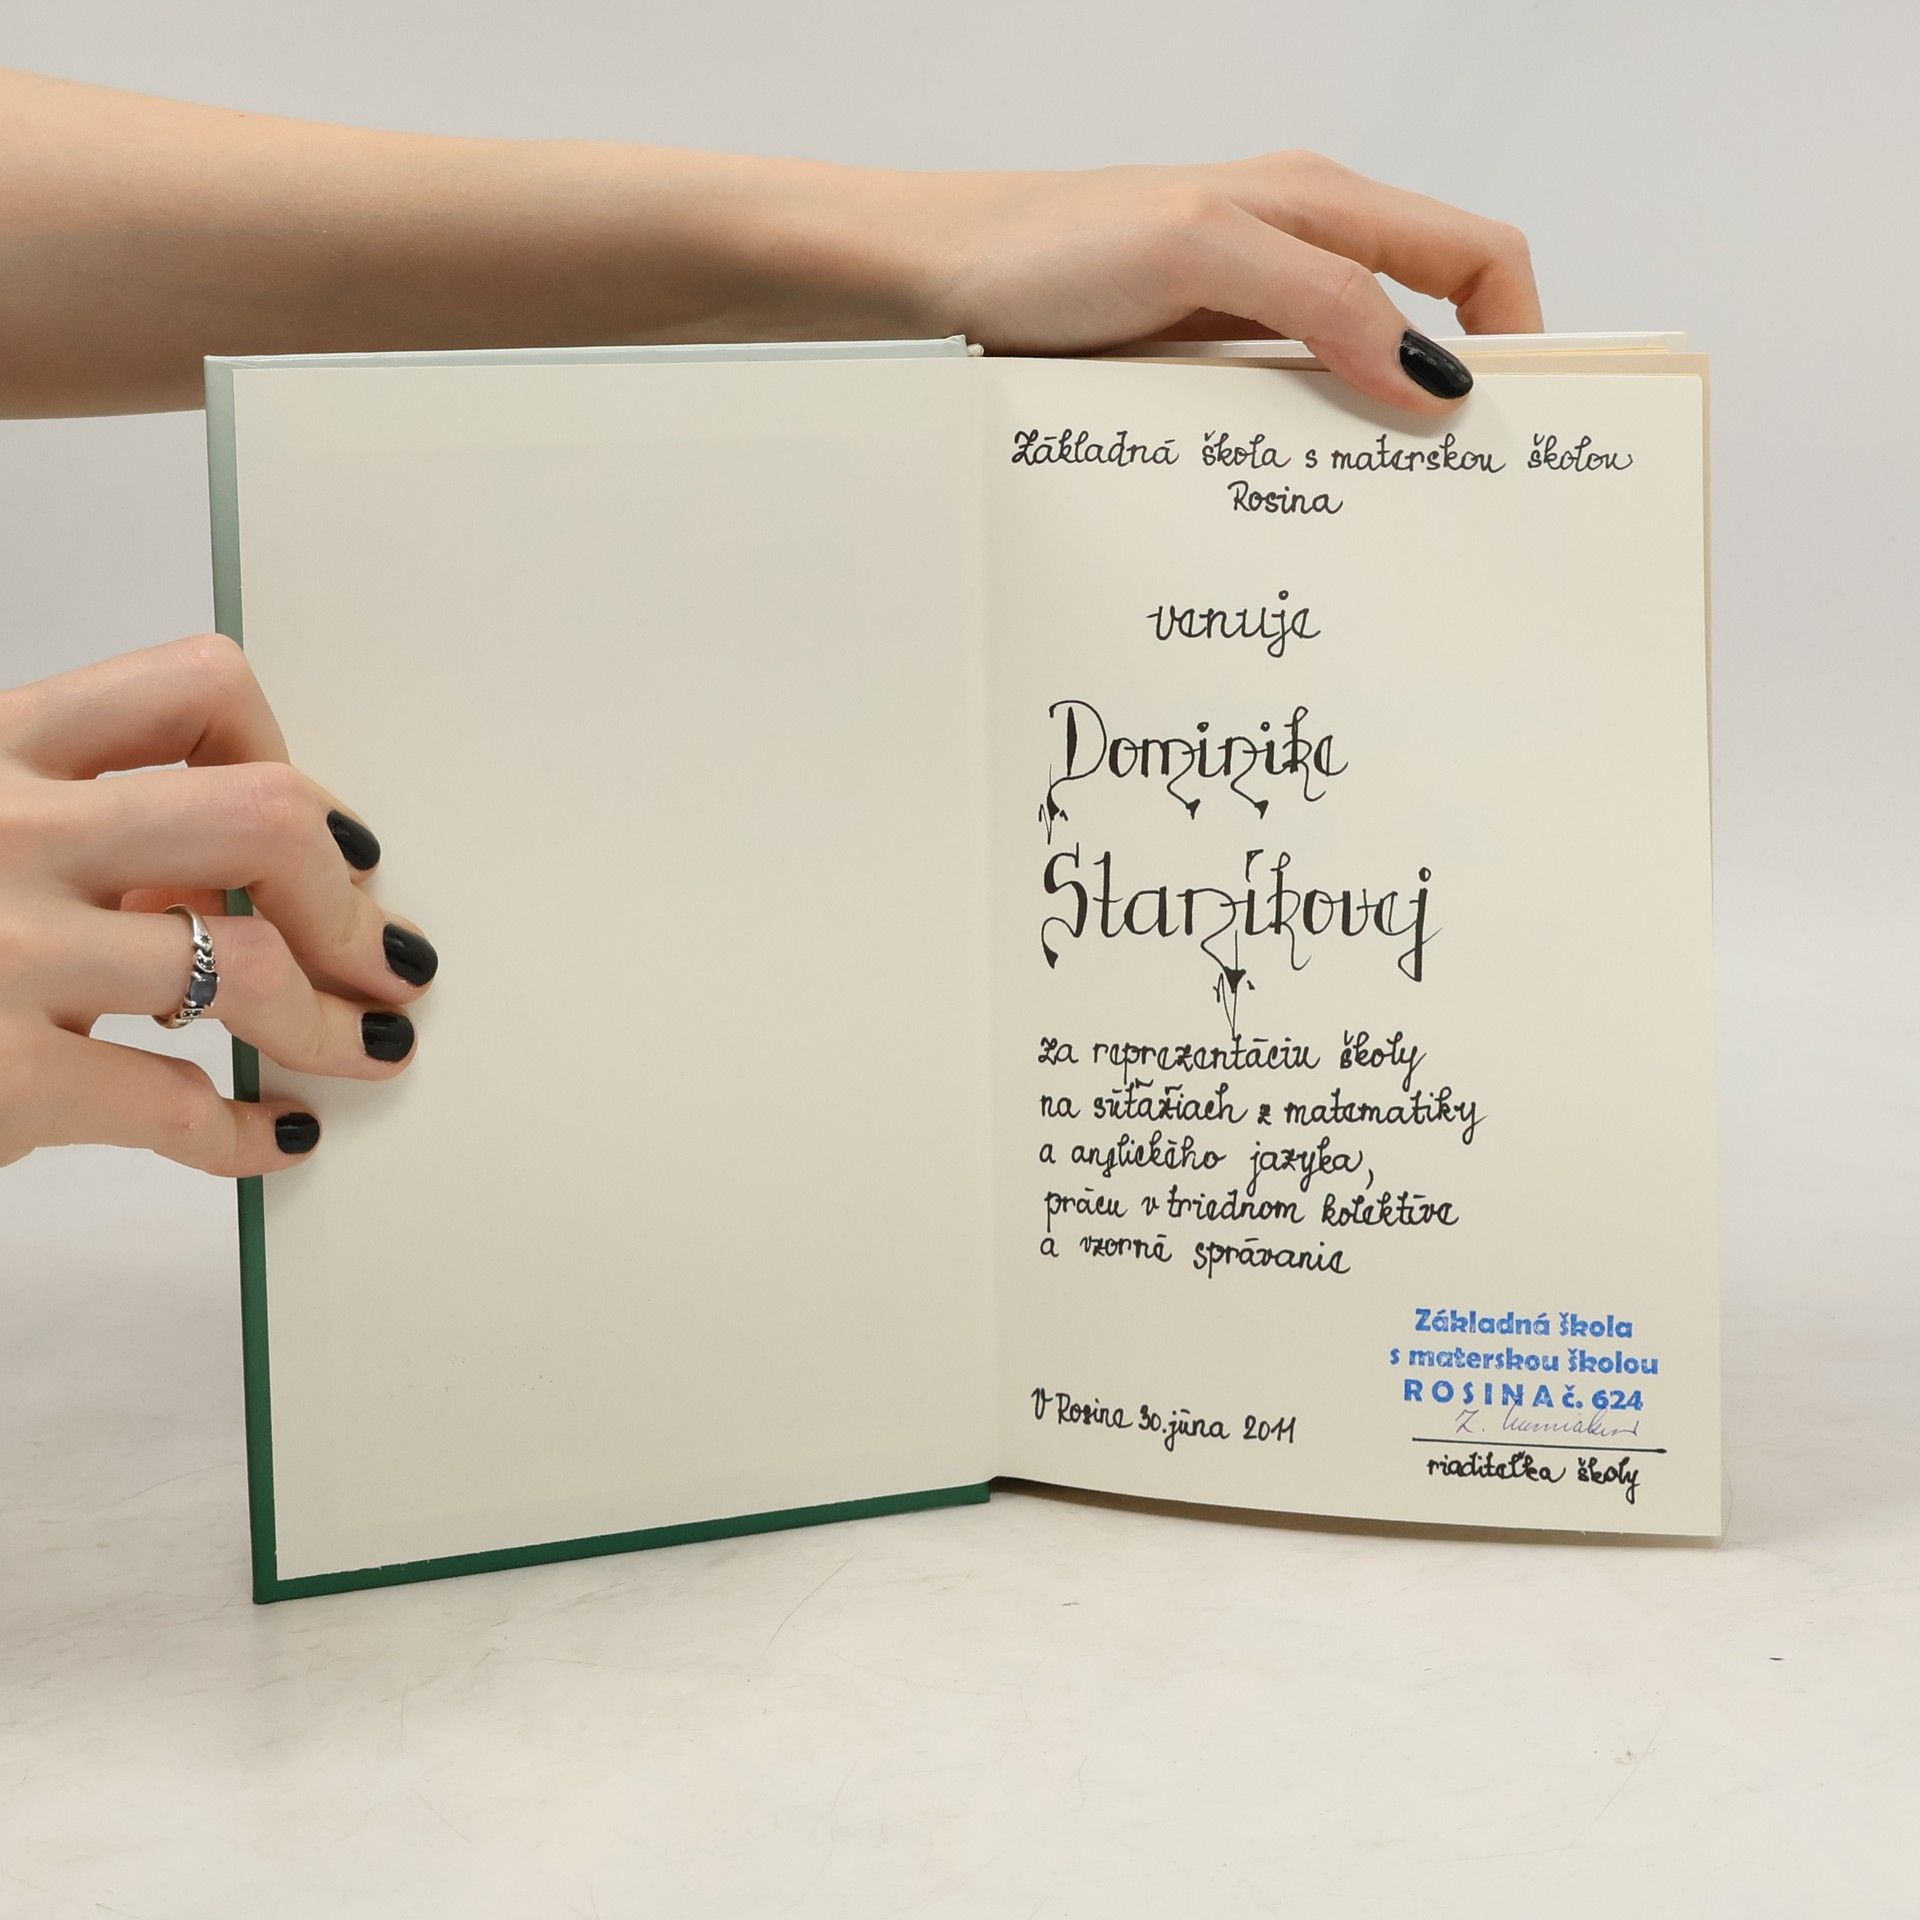 Základná škola s materskou školou
Rosina
venuje
Dominike
Staníkovej
za reprezentáciu školy
na súťažiach z matematiky
a anglického jazyka,
prácu v triednom kolektíve
a vzorné správanie
Základná škola
s materskou školou
ROSINA č. 624
V Rosine 30. júna 2011
riaditeľka školy